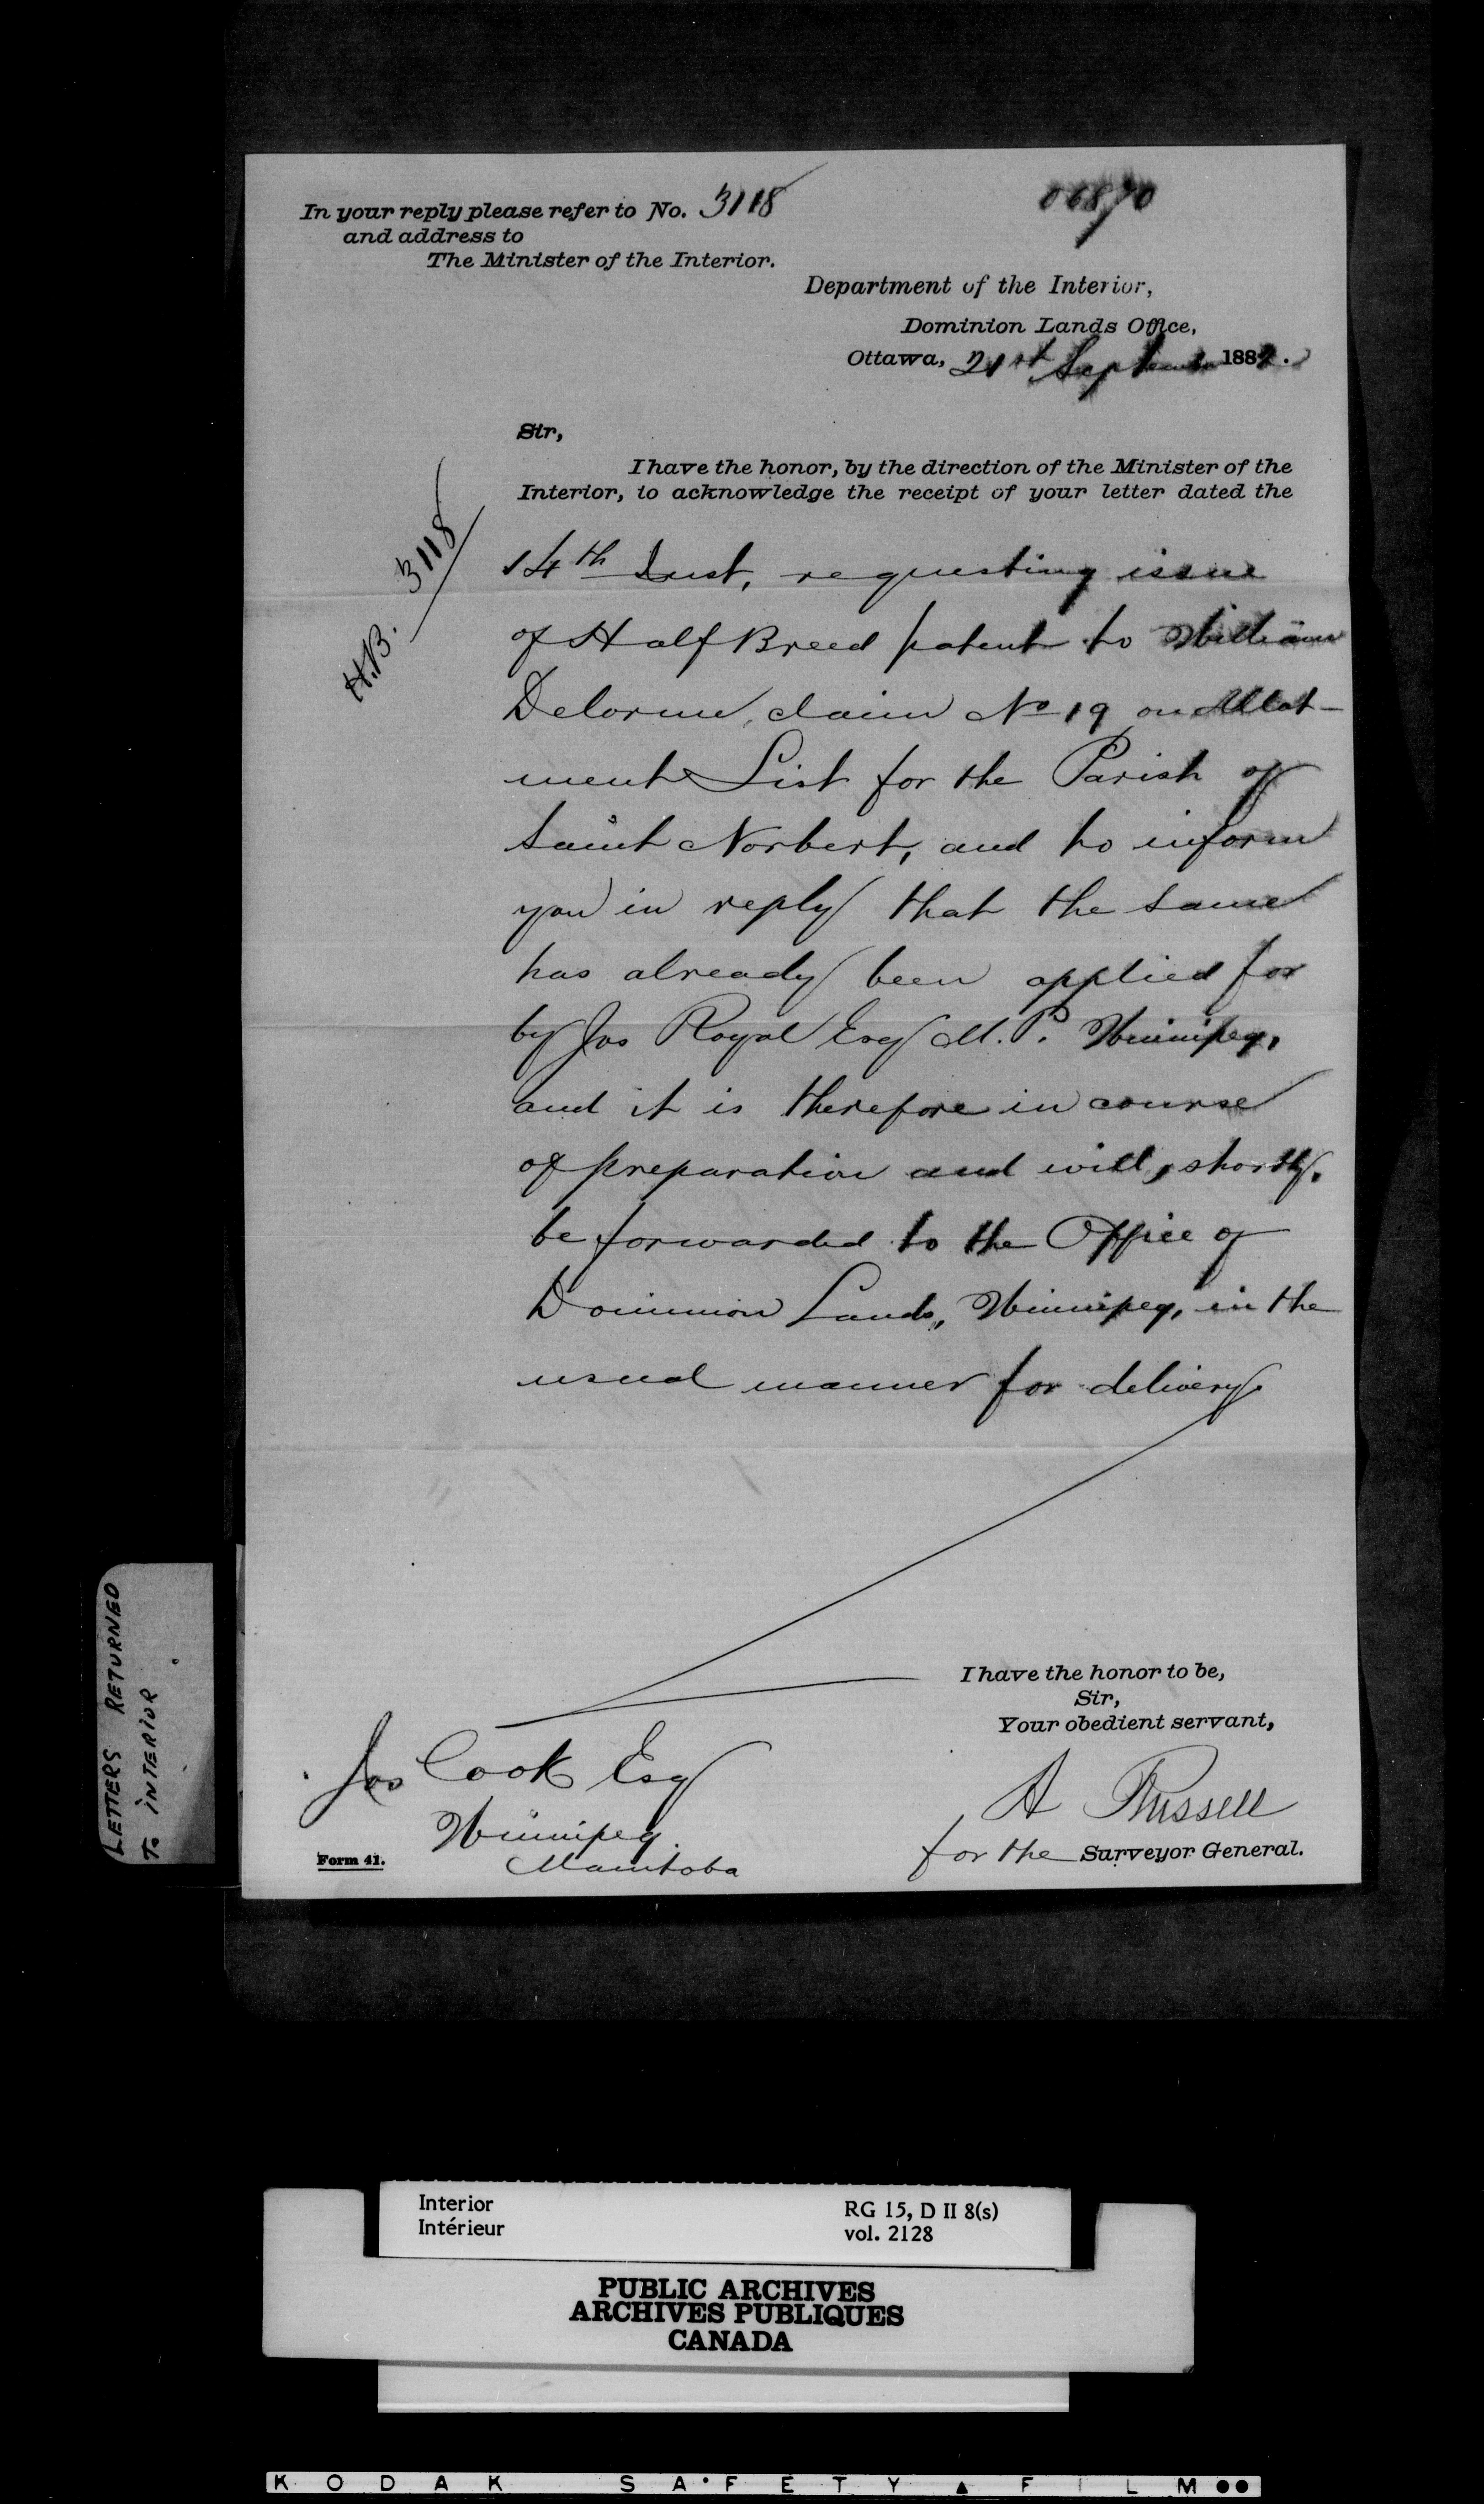 In your reply please refer to No. 3118
and address to
The Minister of the Interior.
06870
Department of the Interior,
Dominion Lands Office,
Ottawa, 21st September 1882.
Sir,
I have the honor, by the direction of the Minister of the
Interior, to acknowledge the receipt of your letter dated the
H.B. 3118
14th Inst, requesting issue
of Half Breed patent to William
Delorme, claim No 19 on Allot-
ment List for the Parish of
Saint Norbert, and to inform
you in reply that the same
has already been applied for
by Jos Royal Esq M.P. Winnipeg,
and it is therefore in course
of preparation and will, shortly,
be forwarded to the Office of
Dominion Lands, Winnipeg, in the
usual manner for delivery.
I have the honor to be,
Sir,
Your obedient servant,
A Russell
for the Surveyor General.
Jos Cook Esq
Winnipeg.
Manitoba
Form 41.
LETTERS RETURNED
To INTERIOR
Interior
Intérieur
RG 15, D II 8(s)
vol. 2128
PUBLIC ARCHIVES
ARCHIVES PUBLIQUES
CANADA
KODAK SAFETY FILM